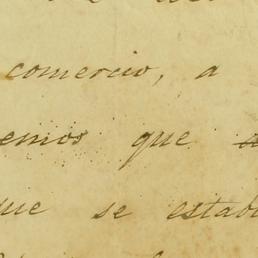 comercio, a
emos que
que se estab